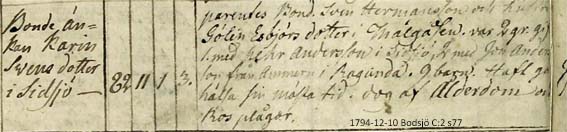 Bonde än-
kan Karin
Svens dotter
i Sidsjö —
82 11 1 3.
parentes Bond. Sven Hermansson och hustru
Gölin Esbjörs dotter i Thälgåsen. var 2 gr. gift
1. med Pehr Anderson i Sidsjö, 2 med Joh. Anders
son från Ammern i Ragunda. 9 barn. Haft go
hälsa sin mästa tid. dog af Ålderdom
kos plågor.
1794-12-10 Bodsjö C:2 s77